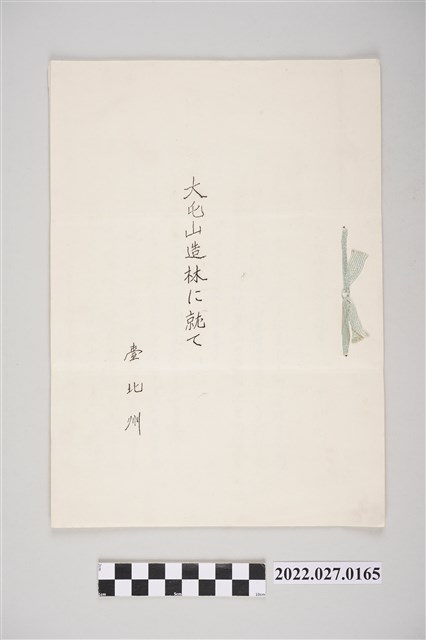 大屯山造林に就て
臺北州
2022.027.0165